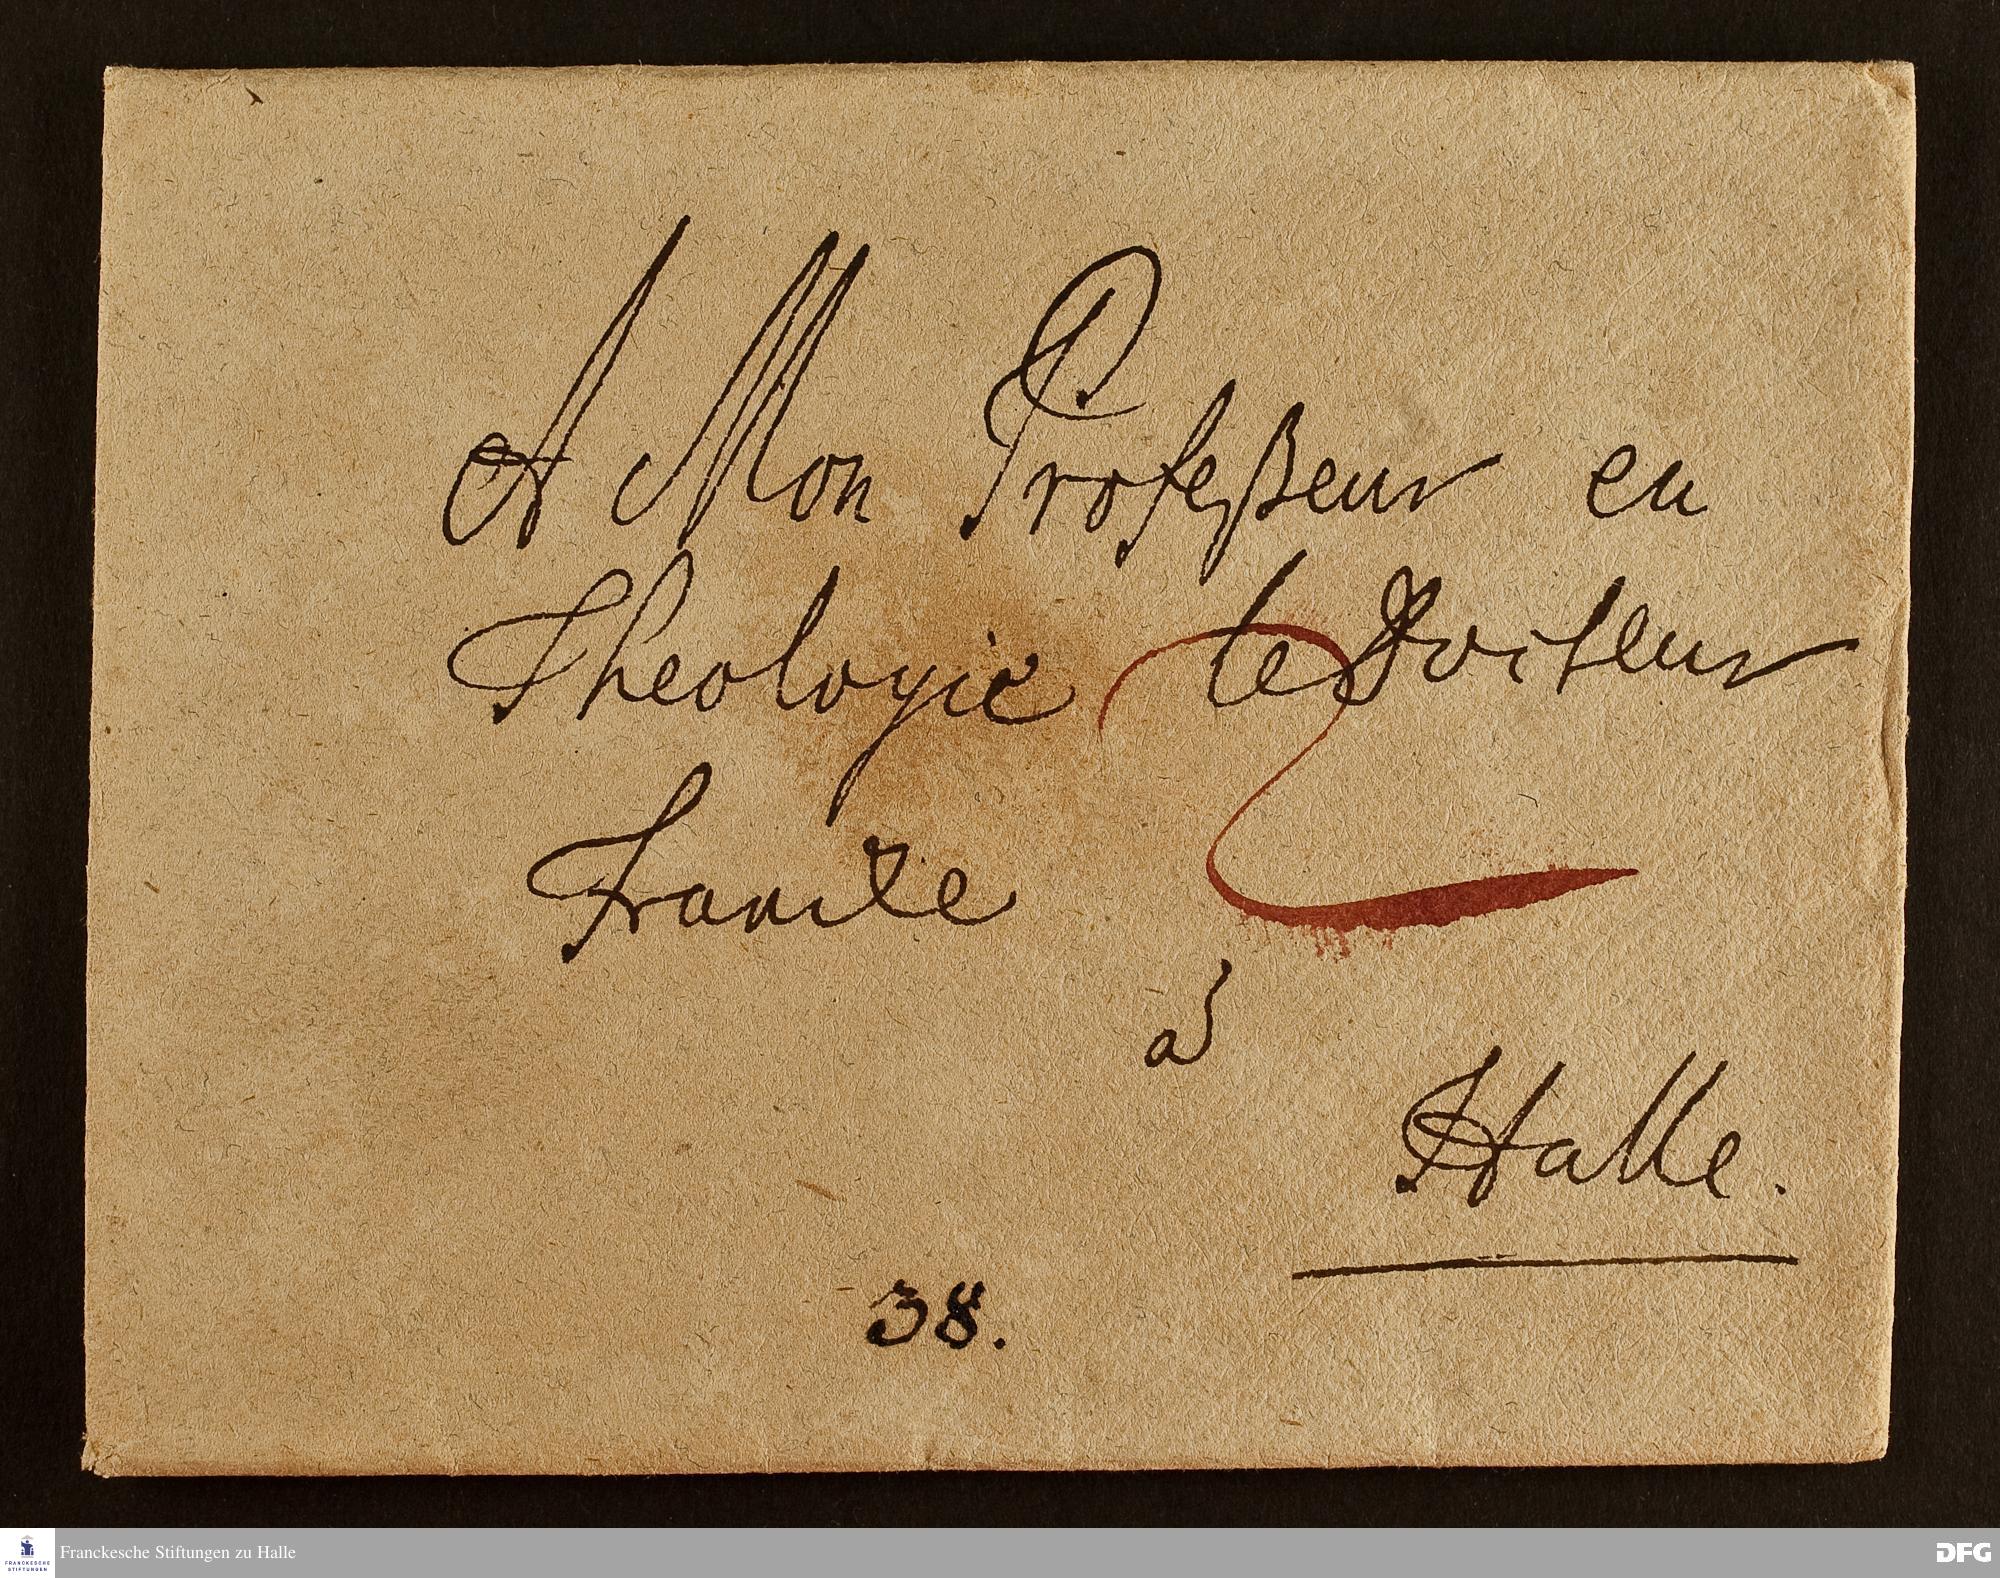 A Mon Profeßeur en
Theologie le Docteur
Francke
à
Halle.
38.
Franckesche Stiftungen zu Halle
FRANCKESCHE
STIFTUNGEN
DFG